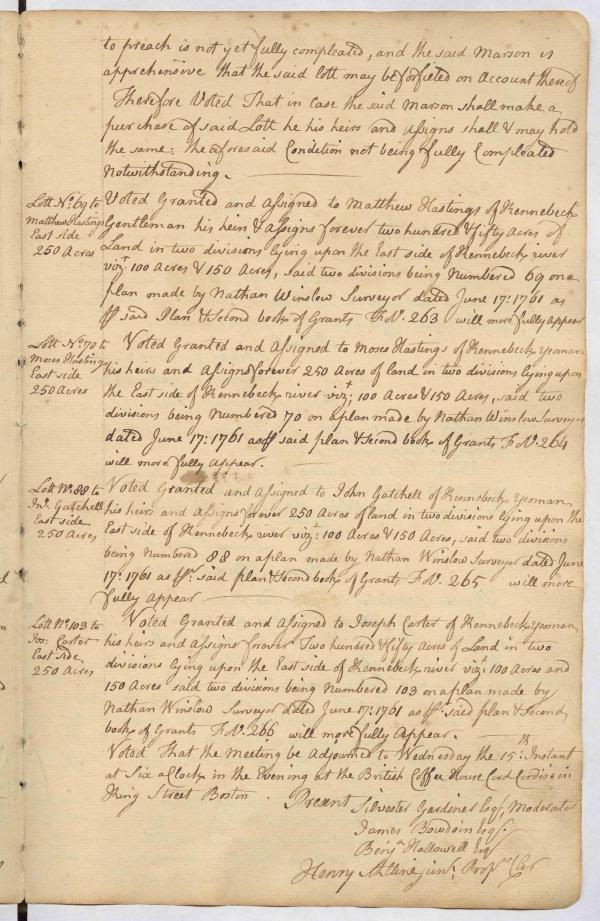 to preach is not yet fully compleated, and the said Marson is
apprehensive that the said lott may be forfieted on Account thereof
Therefore Voted That in Case the said Marson shall make a
purchase of said Lott he his heirs and assigns shall & may hold
the same: the aforesaid Condition not being fully Compleated
Notwithstanding.
Lott No. 69 to
Matthew Hastings
East side
250 Acres
Voted Granted and Assigned to Matthew Hastings of Kennebeck
Gentleman his heirs & assigns forever two hundred & fifty Acres of
Land in two divisions lying upon the East side of Kennebeck river
vizt. 100 Acres & 150 Acres, said two divisions being Numbered 69 on a
plan made by Nathan Winslow Surveyor dated June 17: 1761 as
said Plan & Second book of Grants Fo. 263 will more fully appear
Lott No. 70 to
Moses Hastings
East side
250 Acres
Voted Granted and Assigned to Moses Hastings of Kennebeck yeoman
his heirs and Assigns forever 250 Acres of land in two divisions lying upon
the East Side of Kennebeck river vizt: 100 Acres & 150 Acres, said two
divisions being Numbered 70 on a plan made by Nathan Winslow Surveyor
dated June 17: 1761 as said plan & second book of Grants Fo. 264
will more fully Appear.
Lott No. 88 to
Jno. Gatchell
East side
250 Acres
Voted Granted and assigned to John Gatchell of Kennebeck Yeoman
his heirs and Assigns forever 250 Acres of land in two divisions lying upon the
East side of Kennebeck river vizt: 100 Acres & 150 Acres, said two divisions
being Numbered 88 on a plan made by Nathan Winslow Surveyor dated June
17: 1761 as said plan & second book of Grants Fo. 265 will more
fully Appear
Lott No. 103 to
Jos: Carter
East Side
250 Acres
Voted Granted and Assigned to Joseph Carter of Kennebeck yeoman
his heirs and Assigns forever Two hundred & fifty Acres of Land in two
divisions lying upon the East side of Kennebeck river vizt: 100 Acres and
150 Acres said two divisions being Numbered 103 on a plan made by
Nathan Winslow Surveyor dated June 17: 1761 as said plan & Second
book of Grants Fo. 266 will more fully Appear.
Voted That the Meeting be Adjourned to Wednesday the 15th. Instant
at Six a Clock in the Evening at the British Coffee House in
King Street Boston.
Present Silvester Gardiner Esqr, Moderator
James Bowdoin Esqr.
Benja. Hallowell Esqr
Henry Alline junr. Proprs. Cler